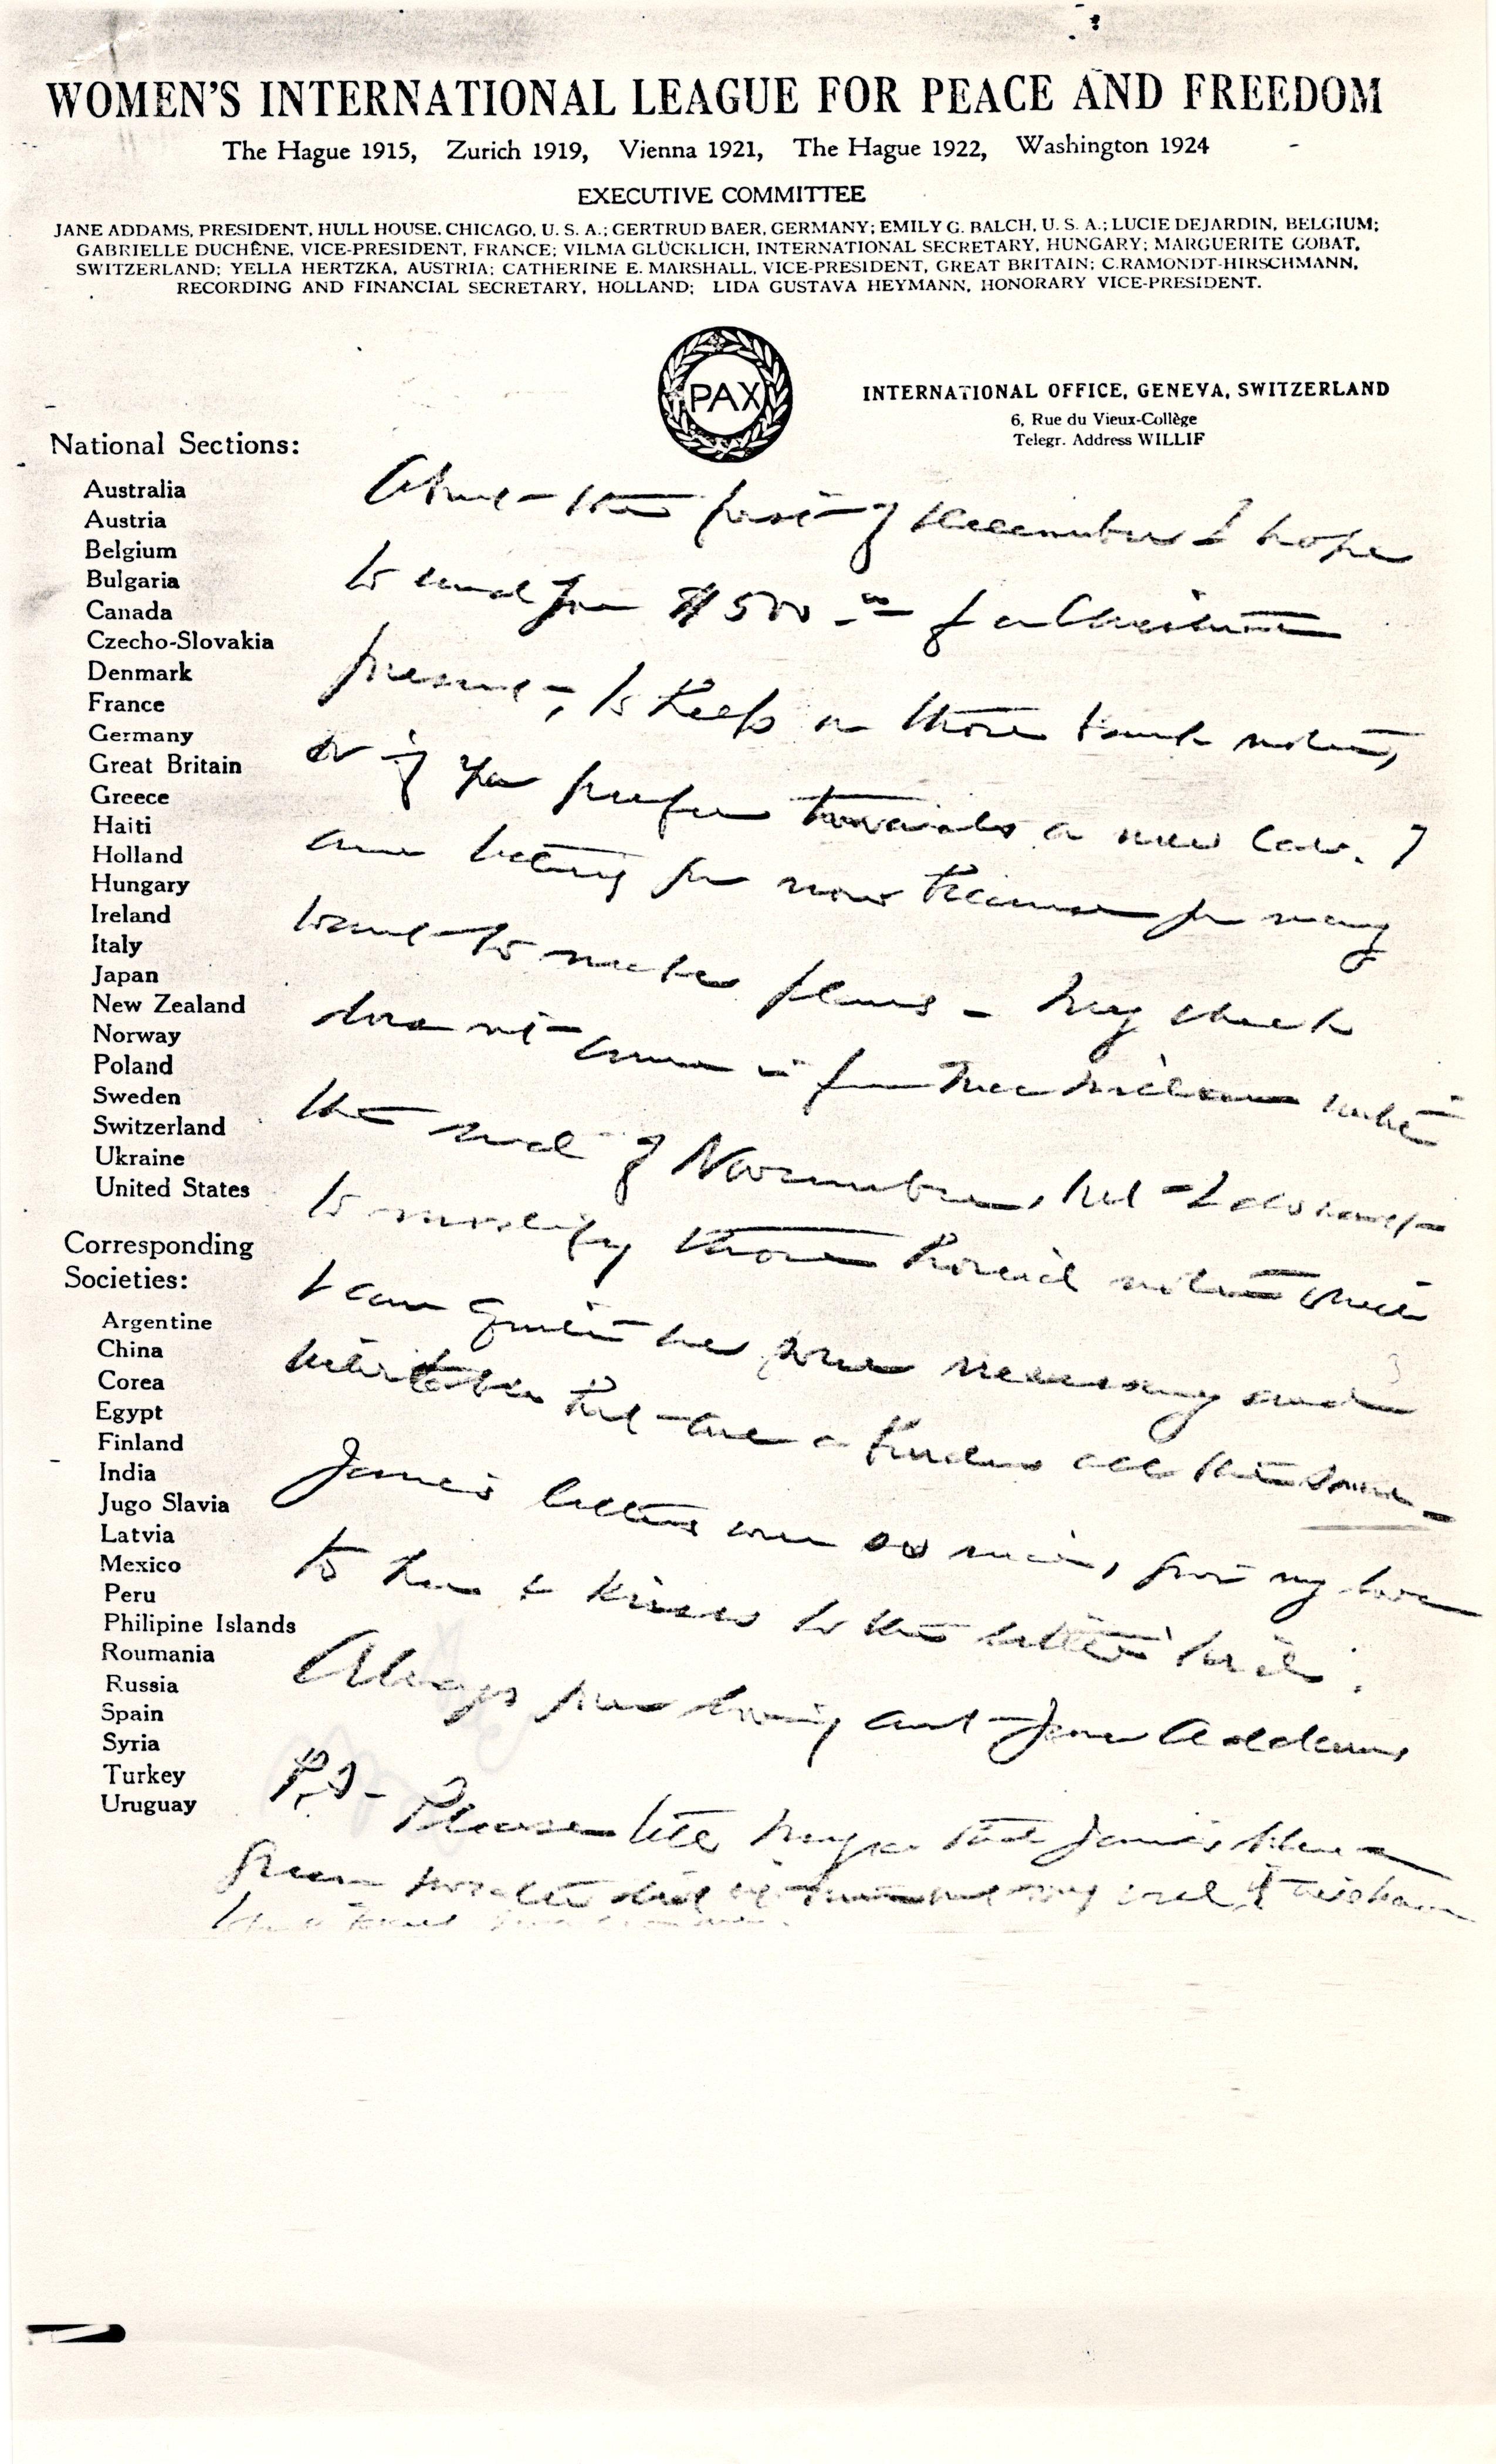 WOMEN'S INTERNATIONAL LEAGUE FOR PEACE AND FREEDOM
The Hague 1915, Zurich 1919, Vienna 1921, The Hague 1922, Washington 1924
EXECUTIVE COMMITTEE
JANE ADDAMS, PRESIDENT, HULL HOUSE, CHICAGO, U. S. A.; GERTRUD BAER, GERMANY; EMILY G. BALCH, U. S. A.; LUCIE DEJARDIN, BELGIUM;
GABRIELLE DUCHÊNE, VICE-PRESIDENT, FRANCE; VILMA GLÜCKLICH, INTERNATIONAL SECRETARY, HUNGARY; MARGUERITE GOBAT,
SWITZERLAND; YELLA HERTZKA, AUSTRIA; CATHERINE E. MARSHALL, VICE-PRESIDENT, GREAT BRITAIN; C.RAMONDT-HIRSCHMANN,
RECORDING AND FINANCIAL SECRETARY, HOLLAND; LIDA GUSTAVA HEYMANN, HONORARY VICE-PRESIDENT.
PAX
INTERNATIONAL OFFICE, GENEVA, SWITZERLAND
6, Rue du Vieux-Collège
Telegr. Address WILLIF
National Sections:
Australia
Austria
Belgium
Bulgaria
Canada
Czecho-Slovakia
Denmark
France
Germany
Great Britain
Greece
Haiti
Holland
Hungary
Ireland
Italy
Japan
New Zealand
Norway
Poland
Sweden
Switzerland
Ukraine
United States
Corresponding
Societies:
Argentine
China
Corea
Egypt
Finland
India
Jugo Slavia
Latvia
Mexico
Peru
Philipine Islands
Roumania
Russia
Spain
Syria
Turkey
Uruguay
About the first of December I hope
to send you $500.00 for a Christmas
present, to keep on those bank notes,
or if you prefer towards a new car. I
am now for you may
want to make plans - My check
does not come in from until
the end of November, but I do want
to those horrid notes that
I can quite be sure necessary and
all the same -
Jane's letters are so nice, give my love
to her & kisses to the little
Always your loving aunt Jane Addams
P.S - Please tell that
green my and I